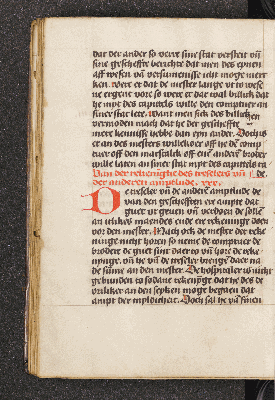 dar der ander so verre sine stat versteit vn̄
sine gescheffte berichte dat men des eynen
aff wesen vn̄ versumenisse icht moge mert
ken. Were et dat de mester lange vt to wese
ne ergene vore so were et dat wal billich dat
he myt des capittels wille den compture an
siner stat lete. Want men sich des billichen
vermoden mach dat he der gescheffte
mere kennisse hebbe dan eyn ander. Doch is
et an des mesters willekoer off he de comp
tuer off den marschalck off eine andere broder
wille laten an siner stat myt des capittels ra
Van der rekenighe des treselers vn̄ de
der anderen amptlude. xxv.
De treseler vn̄ de andere amptlude de
van den geschefften ere ampte dat
guet vt geuen vn̄ verdoen de solle
an itlikes maendes ende ere rekenunge doen
vor den mester. Mach ock de mester der reke
nunge nicht horen so neme de compture de
brodere de guet sint dar to vn̄ hore de reke
nynge. vn̄ he vn̄ de treseler brenge dar na
de sume an den mester. De hospitaler is nicht
gebunden to sodane rekenynge dat he des de
vriliker an den seyken moge begaen dat
ampt der myldicheit. Doch sal he vn̄ sinen